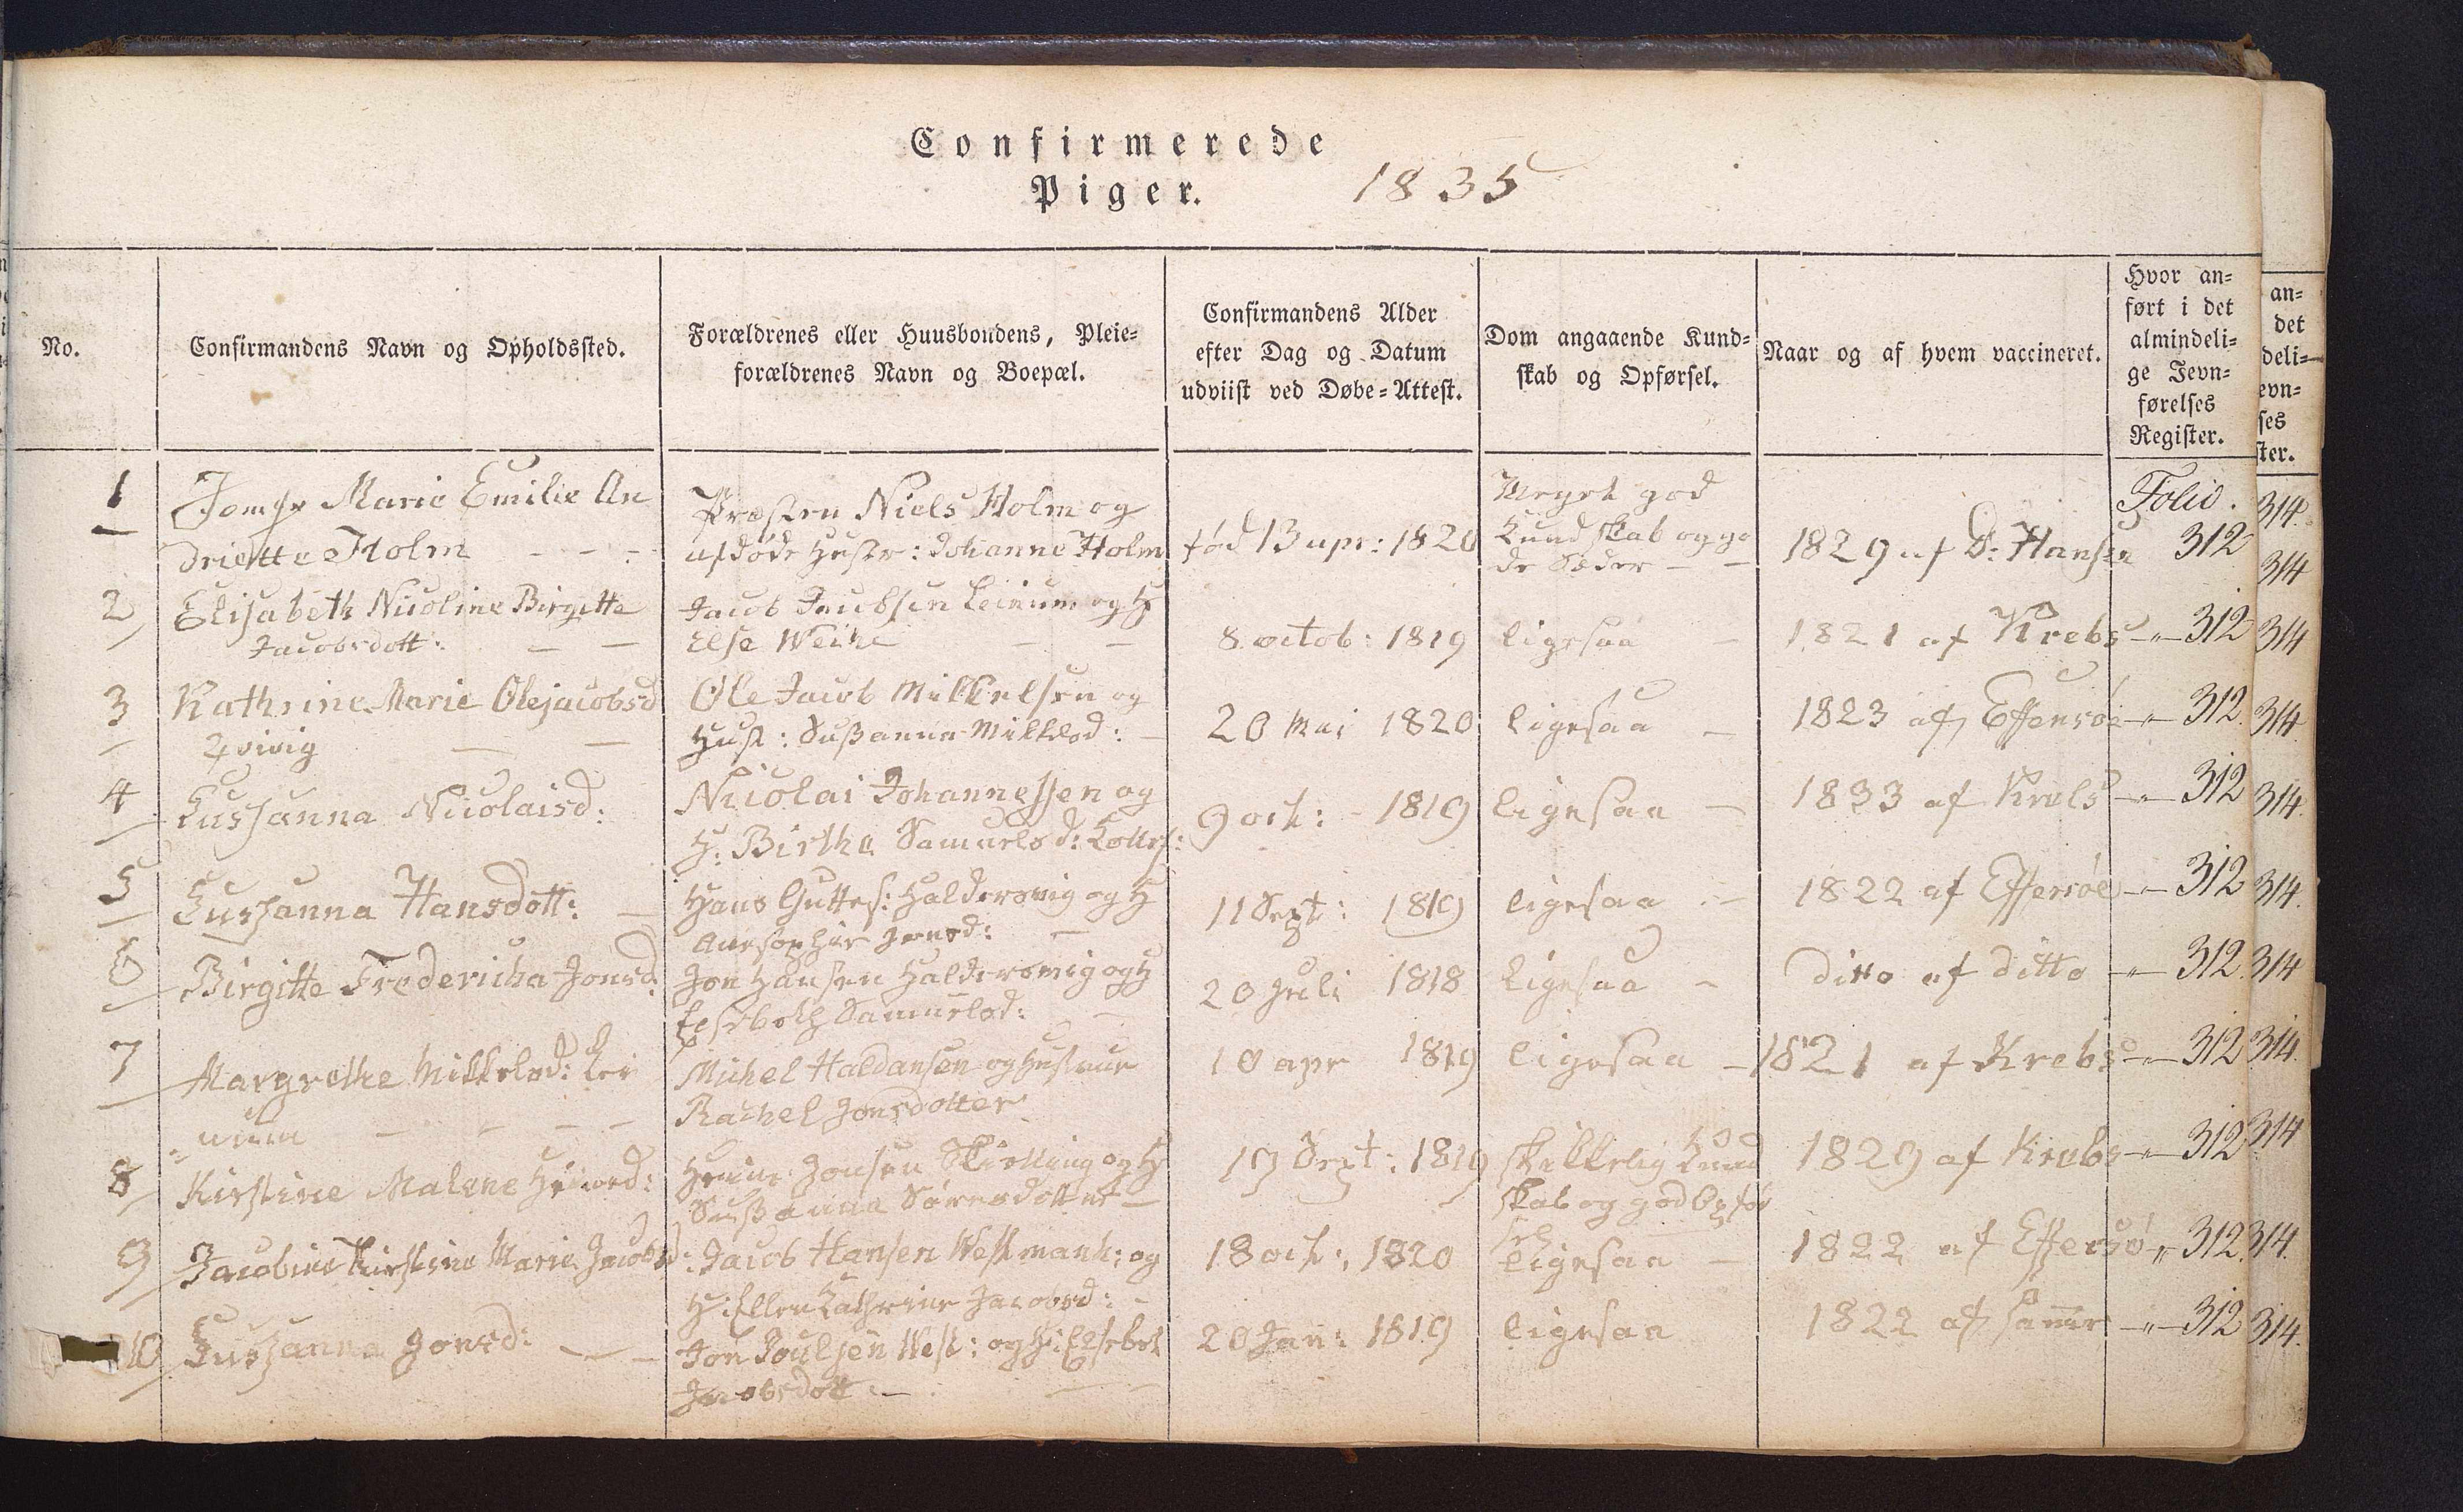 Confirmerede
Piger. 1835
No.
Confirmandens Navn og Opholdssted.
Forældrenes eller Huusbondens, Pleie-
forældrenes Navn og Boepæl.
Confirmandens Alder
efter Dag og Datum
udviist ved Døbe-Attest.
Dom angaaende Kund-
skab og Opførsel.
Naar og af hvem vaccineret.
Hvor an-
ført i det
almindeli-
ge Jevn-
førelses
Register.
an-
det
deli-
evn-
ses
ster.
1
Jomfr Marie Emilie An
driette Holm
Præsten Niels Holm og
afdøde Hustr: Johanne Holm
fød 13 apr: 1820
Meget god
Kundskab og go
de Sæder
1829 af D: Hansen
Folio.
312
314.
314
2
Elisabeth Nicoline Birgitte
Jacobsdott:
Jacob Jacobsen Leinum og H
Else Weihe
8 octob: 1819
ligesaa
1821 af Krebs
312
314
3
Kathrine Marie Olejacobsd
Qvivig
Ole Jacob Mikkelsen og
Hust: Sußanna Mikkelsd:
20 Mai 1820
ligesaa
1823 af Effersøe
312.
314
4
Sussanna Nicolaisd:
Nicolai Johannessen og
H: Birthe Samuelsd:
9 oct: 1819
ligesaa
1833 af Krebs
312
314.
5
Susanna Hansdott:
Hans Guttes: Haldersvig og H
Anesophie Joensd:
11 Sept: 1819
ligesaa
1822 af Effersøe
312
314.
6
Birgitte Fredericha Jonsd:
Jon Hansen Haldersvig og H
Elsebeth Samuelsd:
20 Juli 1818
Ligesaa
ditto af ditto
312.
314
7
Margrethe Mikkelsd: Lei
num
Michel Haldansen og Hustrue
Rachel Jonsdotter
10 apr 1819
ligesaa
1821 af Krebs
312
314.
8
Kirstine Malene Heinesd:
Heine Jonsen Skielling og H
Sußanna Sørensdotter
19 Sept: 1819
skikkelig Kund
skab og god Opfør
sel
1829 af Krebs
312
314
9
Jacobine Kirstine Marie Jacobsd:
Jacob Hansen Westmanh: og
H: Ellen Cathrine Jacobsd:
18 oct: 1820
ligesaa
1822 af Effersø
312.
314.
10
Susanna Jonsd:
Jon Poulsen West: og H: Elsebet
Jacobsdott:
20 Jan: 1819
ligesaa
1822 af samme
312
314.